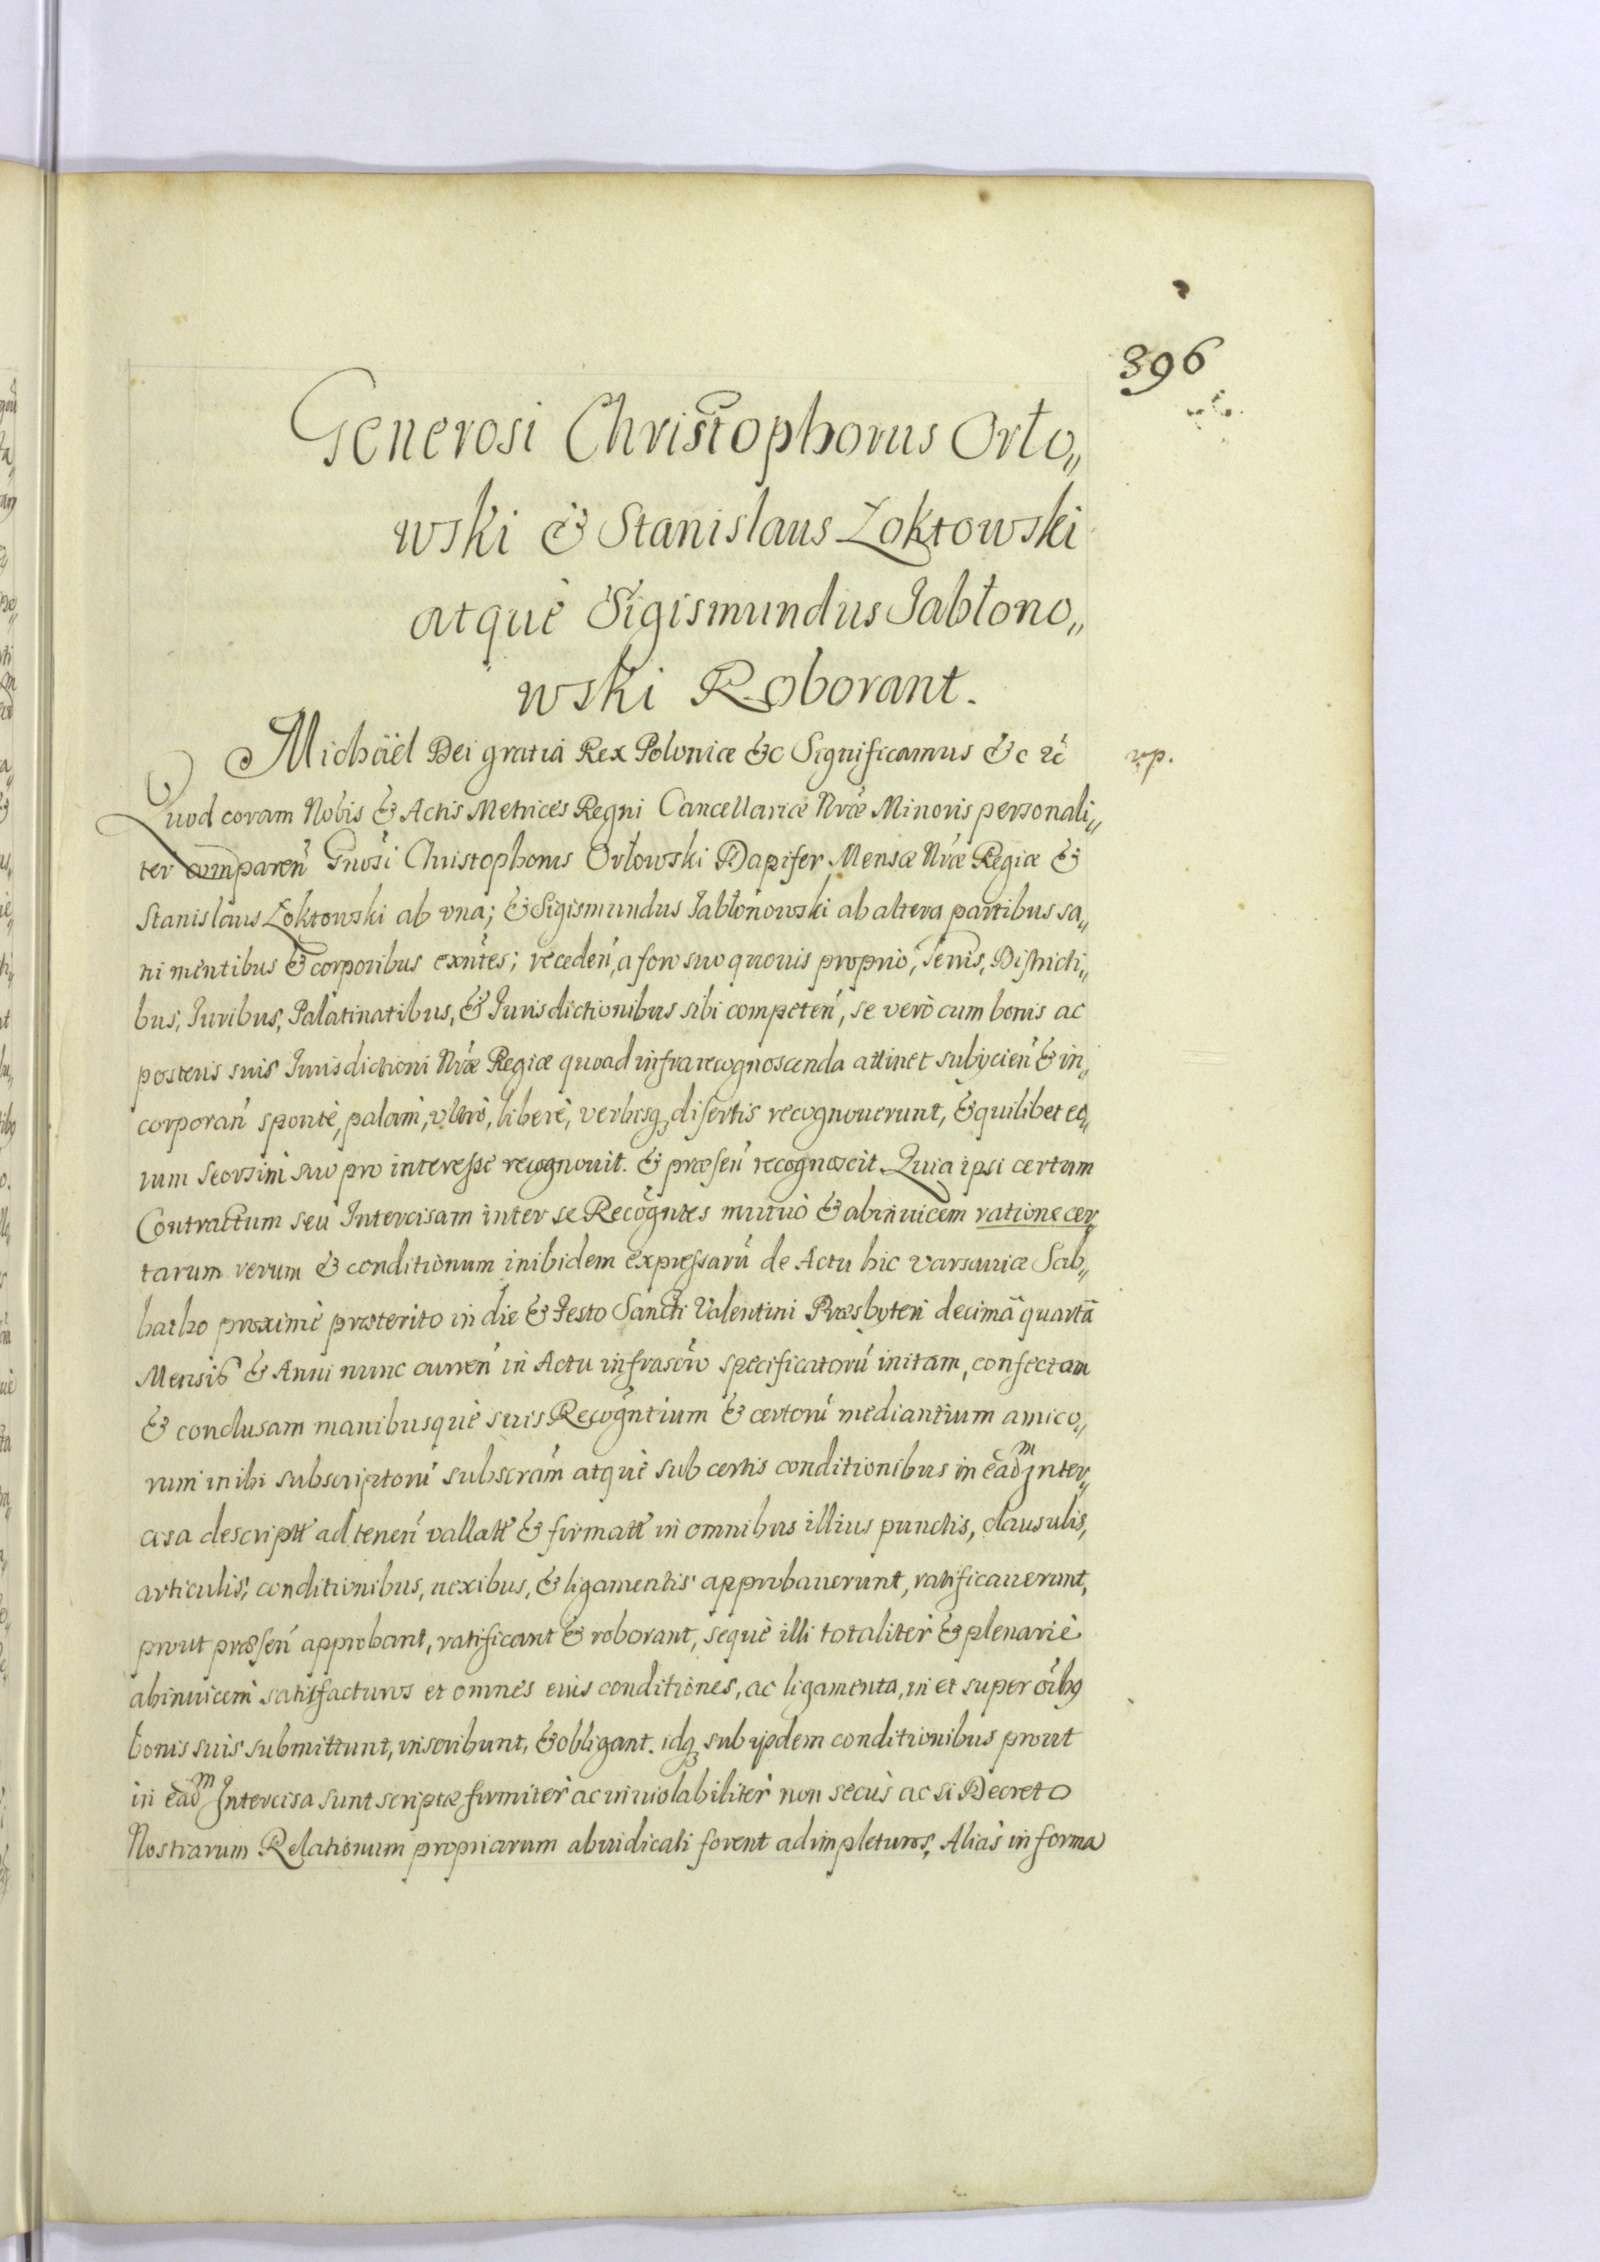 396
Generosi Christophorus Orło„
wski & Stanislaus Łoktowski
atquè Sigismundus Jabłono„
wski Roborant.
Michäel Dei gratiâ Rex Poloniæ &c Significamus &c &c
Quod coram Nobis & Actis Metrices Regni Cancellariæ Nræ Minoris personali„
ter comparen̄ Gnosi Christophorus Orłowski Dapifer Mensæ Nræ Regiæ &
Stanislaus Łoktowski ab vna; & Sigismundus Jabłonowski ab altera partibus sa„
ni mentibus & corporibus exn̄tes; receden̄, a foro suo quouis proprio, Terris, Districti„
bus, Juribus, Palatinatibus, & Jurisdictionibus sibi competen̄, se verò cum bonis ac
posteris suis Jurisdictioni Nræ Regiæ quoad infra recognoscenda attinet subijcien̄ & in„
corporan̄ spontè, palàm, vltrò, liberè, verbisq disertis recognouerunt, & quilibet eo„
rum seorsim suo pro interesse recognouit. & præsen̄ recognoscit. Quia ipsi certum
Contractum seu Intercisam inter se Recogn̄tes mutuò & abinuicem ratione cer„
tarum rerum & conditionum inibidem expressarū de Actu hic Varsauiæ Sab„
batho proximè præterito in die & Festo Sancti Valentini Præsbyteri decimâ quartâ
Mensis & Anni nunc curren̄ in Actu infrascrō specificatorū initam, confectam
& conclusam manibusquè suis Recogn̄tium & certorū mediantium amico„
rum inibi subscriptorū subscram̄ atquè sub certis conditionibus in ead̄ᵐ Inter„
cisa descriptt ad tenen̄ vallatt & firmatt in omnibus illius punctis, clausulis,
articulis, conditionibus, nexibus, & ligamentis approbauerunt, ratificauerunt,
prout præsen̄ approbant, ratificant & roborant, sequè illi totalitèr & plenariè
abinuicem satisfacturos et omnes eius conditiones, ac ligamenta, in et super oībꝯ
bonis suis submittunt, inscribunt, & obligant. idq sub ijsdem conditionibus prout
in ead̄ᵐ Intercisa sunt scriptæ firmitèr ac inuiolabilitèr non secùs ac si Decreto
Nostrarum Relationum propriarum abiudicati forent adimpleturos, Aliàs in forma